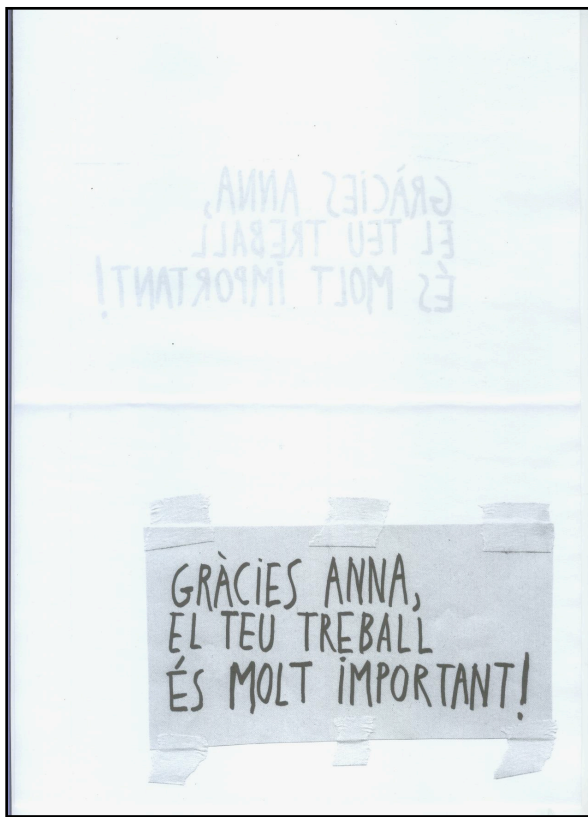 GRÀCIES ANNA,
EL TEU TREBALL
ÉS MOLT IMPORTANT!
GRÀCIES ANNA,
EL TEU TREBALL
ÉS MOLT IMPORTANT!